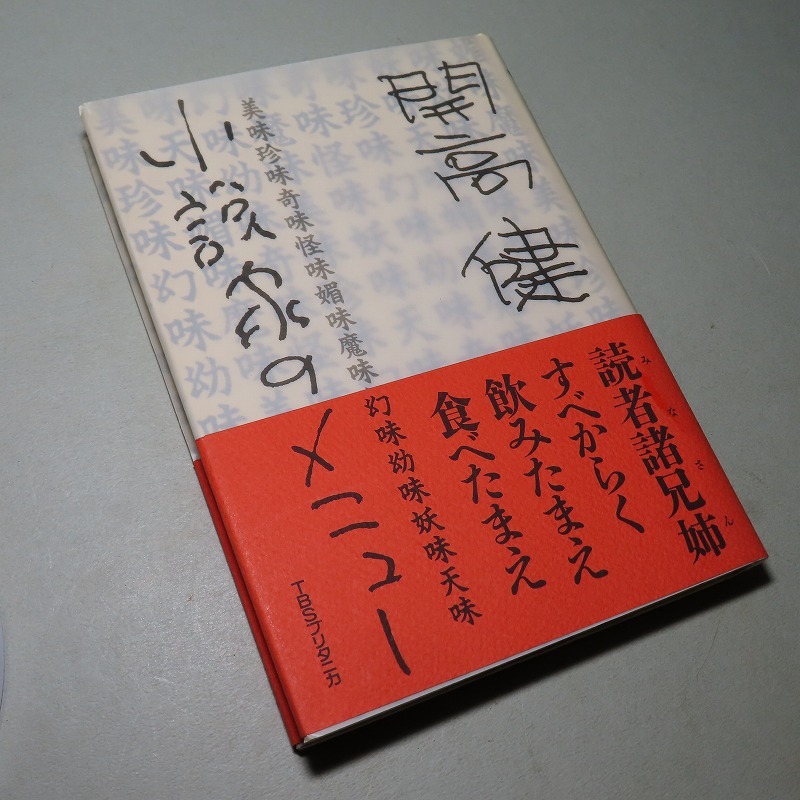 開高健
読者諸兄姉
みなさん
すべからく
飲みたまえ
食べたまえ
美味珍味奇味怪味媚味魔味幻味幼味妖味天味
小説家のメニュー
TBSブリタニカ